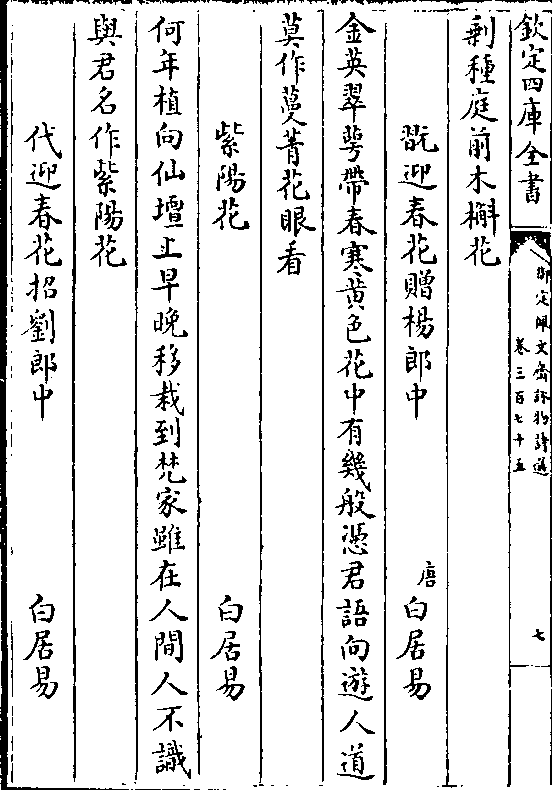 欽定四庫全書
御定佩文齋詠物詩選
卷三百七十五
七
剩種庭前木槲花
翫迎春花贈楊郎中 唐白居易
金英翠萼帶春寒黄色花中有幾般憑君語向遊人道
莫作蔓菁花眼看
紫陽花 白居易
何年植向仙壇上早晚移栽到梵家雖在人間人不識
與君名作紫陽花
代迎春花招劉郎中 白居易